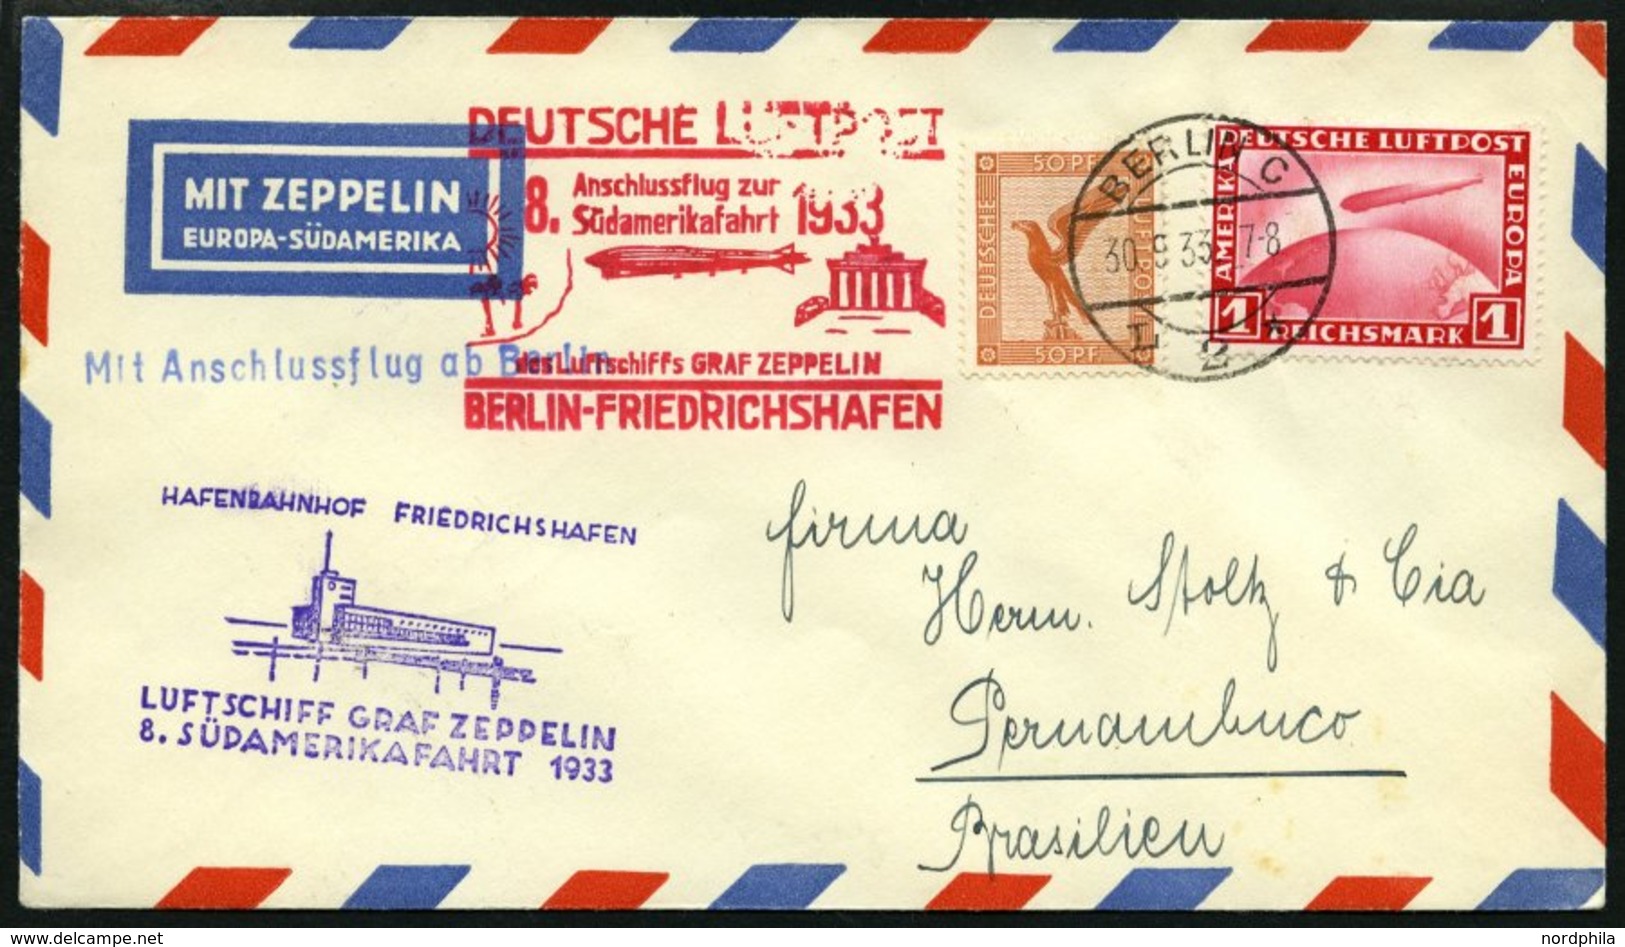 DEUTSCHE LUFTPOST
8. Anschlussflug zur
Südamerikafahrt 1933
des Luftschiffs GRAF ZEPPELIN
BERLIN-FRIEDRICHSHAFEN
MIT ZEPPELIN
EUROPA-SÜDAMERIKA
Mit Anschlussflug ab Berlin
50 PF.
DEUTSCHE
LUFTPOST
50 PF.
BERLIN C
30.9.33. 7-8
L 2 *
DEUTSCHE LUFTPOST
AMERIKA
EUROPA
1 REICHSMARK 1
HAFENBAHNHOF FRIEDRICHSHAFEN
LUFTSCHIFF GRAF ZEPPELIN
8. SÜDAMERIKAFAHRT 1933
Firma
Herm. Stoltz & Cia
Pernambuco
Brasilien
www.delcampe.net
nordphila